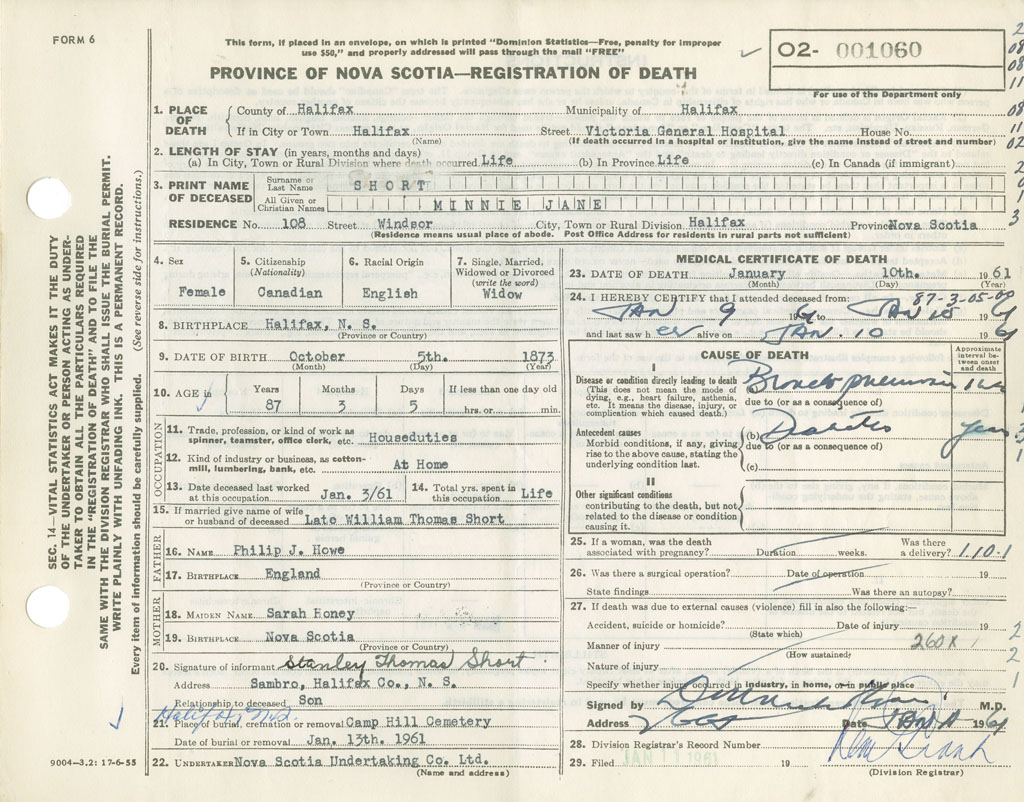 FORM 6
This form, if placed in an envelope, on which is printed "Dominion Statistics—Free, penalty for improper
use $50," and properly addressed will pass through the mail "FREE"
02- 001060
For use of the Department only
PROVINCE OF NOVA SCOTIA—REGISTRATION OF DEATH
1. PLACE OF DEATH
County of Halifax Municipality of Halifax
If in City or Town Halifax Street Victoria General Hospital House No.
(Name) (If death occurred in a hospital or institution, give the name instead of street and number)
2. LENGTH OF STAY (in years, months and days)
(a) In City, Town or Rural Division where death occurred Life (b) In Province Life (c) In Canada (if immigrant)
3. PRINT NAME OF DECEASED
Surname or Last Name SHORT
All Given or Christian Names MINNIE JANE
RESIDENCE No. 108 Street Windsor City, Town or Rural Division Halifax Province Nova Scotia
(Residence means usual place of abode. Post Office Address for residents in rural parts not sufficient)
4. Sex
Female
5. Citizenship (Nationality)
Canadian
6. Racial Origin
English
7. Single, Married, Widowed or Divorced (write the word)
Widow
8. BIRTHPLACE Halifax, N. S.
(Province or Country)
9. DATE OF BIRTH October 5th. 1873
(Month) (Day) (Year)
10. AGE in
Years Months Days If less than one day old
87 3 5 hrs. or min.
OCCUPATION
11. Trade, profession, or kind of work as
spinner, teamster, office clerk, etc. Houseduties
12. Kind of industry or business, as cotton-
mill, lumbering, bank, etc. At Home
13. Date deceased last worked
at this occupation Jan. 3/61
14. Total yrs. spent in
this occupation Life
15. If married give name of wife
or husband of deceased Late William Thomas Short
FATHER
16. NAME Philip J. Howe
17. BIRTHPLACE England
(Province or Country)
MOTHER
18. MAIDEN NAME Sarah Honey
19. BIRTHPLACE Nova Scotia
(Province or Country)
20. Signature of informant Stanley Thomas Short
Address Sambro, Halifax Co., N. S.
Relationship to deceased Son
21. Place of burial, cremation or removal Camp Hill Cemetery
Date of burial or removal Jan. 13th. 1961
22. UNDERTAKER Nova Scotia Undertaking Co. Ltd.
(Name and address)
MEDICAL CERTIFICATE OF DEATH
23. DATE OF DEATH January 10th. 1961
(Month) (Day) (Year)
87-3-05-00
24. I HEREBY CERTIFY that I attended deceased from:
JAN 9 19 JAN 10 1961
and last saw her alive on JAN. 10 1961
CAUSE OF DEATH
Approximate interval between onset and death
I
Disease or condition directly leading to death
(This does not mean the mode of
dying, e.g., heart failure, asthenia,
etc. It means the disease, injury, or
complication which caused death.)
Bronchopneumonia
due to (or as a consequence of)
Antecedent causes
Morbid conditions, if any, giving
rise to the above cause, stating the
underlying condition last.
(b) Diabetes years
due to (or as a consequence of)
(c)
II
Other significant conditions
contributing to the death, but not
related to the disease or condition
causing it.
25. If a woman, was the death Was there
associated with pregnancy? Duration weeks. a delivery? 1.10.1
26. Was there a surgical operation? Date of operation 19
State findings Was there an autopsy?
27. If death was due to external causes (violence) fill in also the following:—
Accident, suicide or homicide? Date of injury 19
(State which)
Manner of injury 260X
(How sustained)
Nature of injury
Specify whether injury occurred in industry, in home, or in public place
Signed by M.D.
Address VGH Date JAN 1961
28. Division Registrar's Record Number
29. Filed 19
(Division Registrar)
SEC. 14—VITAL STATISTICS ACT MAKES IT THE DUTY
OF THE UNDERTAKER OR PERSON ACTING AS UNDER-
TAKER TO OBTAIN ALL THE PARTICULARS REQUIRED
IN THE "REGISTRATION OF DEATH" AND TO FILE THE
SAME WITH THE DIVISION REGISTRAR WHO SHALL ISSUE THE BURIAL PERMIT.
WRITE PLAINLY WITH UNFADING INK. THIS IS A PERMANENT RECORD.
Every item of information should be carefully supplied. (See reverse side for instructions.)
9004—3.2: 17-6-55